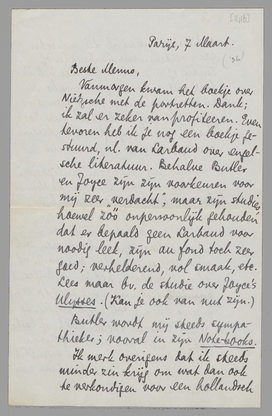 Parijs, 7 Maart.
Beste Menno,
Vanmorgen kwam het boekje over
Nietzsche met de portretten. Dank;
ik zal er zeker van profiteeren. Even
tevoren heb ik je nog een boekje ge-
stuurd, nl. van Larbaud over engel-
sche literatuur. Behalve Butler
en Joyce zijn zijn voorkeuren voor
mij zeer „verdacht", maar zijn studies,
hoewel zóó onpersoonlijk gehouden
dat er bepaald geen Larbaud voor
noodig leek, zijn au fond toch zeer
goed; verhelderend, vol smaak, etc.
Lees maar bv. de studie over Joyce's
Ulysses. (Kan je ook van nut zijn.)
Butler wordt mij steeds sympa-
thieker; vooral in zijn Note-books.
Ik merk overigens dat ik steeds
minder zin krijg om wat dan ook
te verkondigen voor een hollandsch